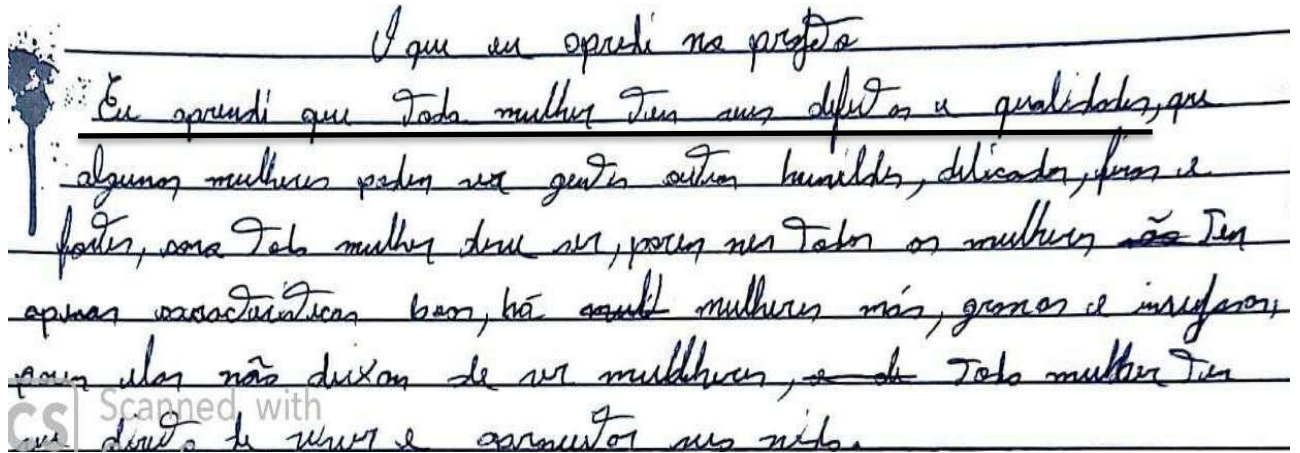 O que eu apredi no projeto
Eu aprendi que toda mulher tem suas defeitos e qualidades, que
algumas mulheres podem ser gentis outras humildes, delicadas, finas e
fortes, como toda mulher deve ser, porem nem todas as mulheres não tem
apenas características boas, há mulheres más, grossas e
porem elas não deixam de ser mulheres, toda mulher tem
Scanned with
CS
seu direito de viver e